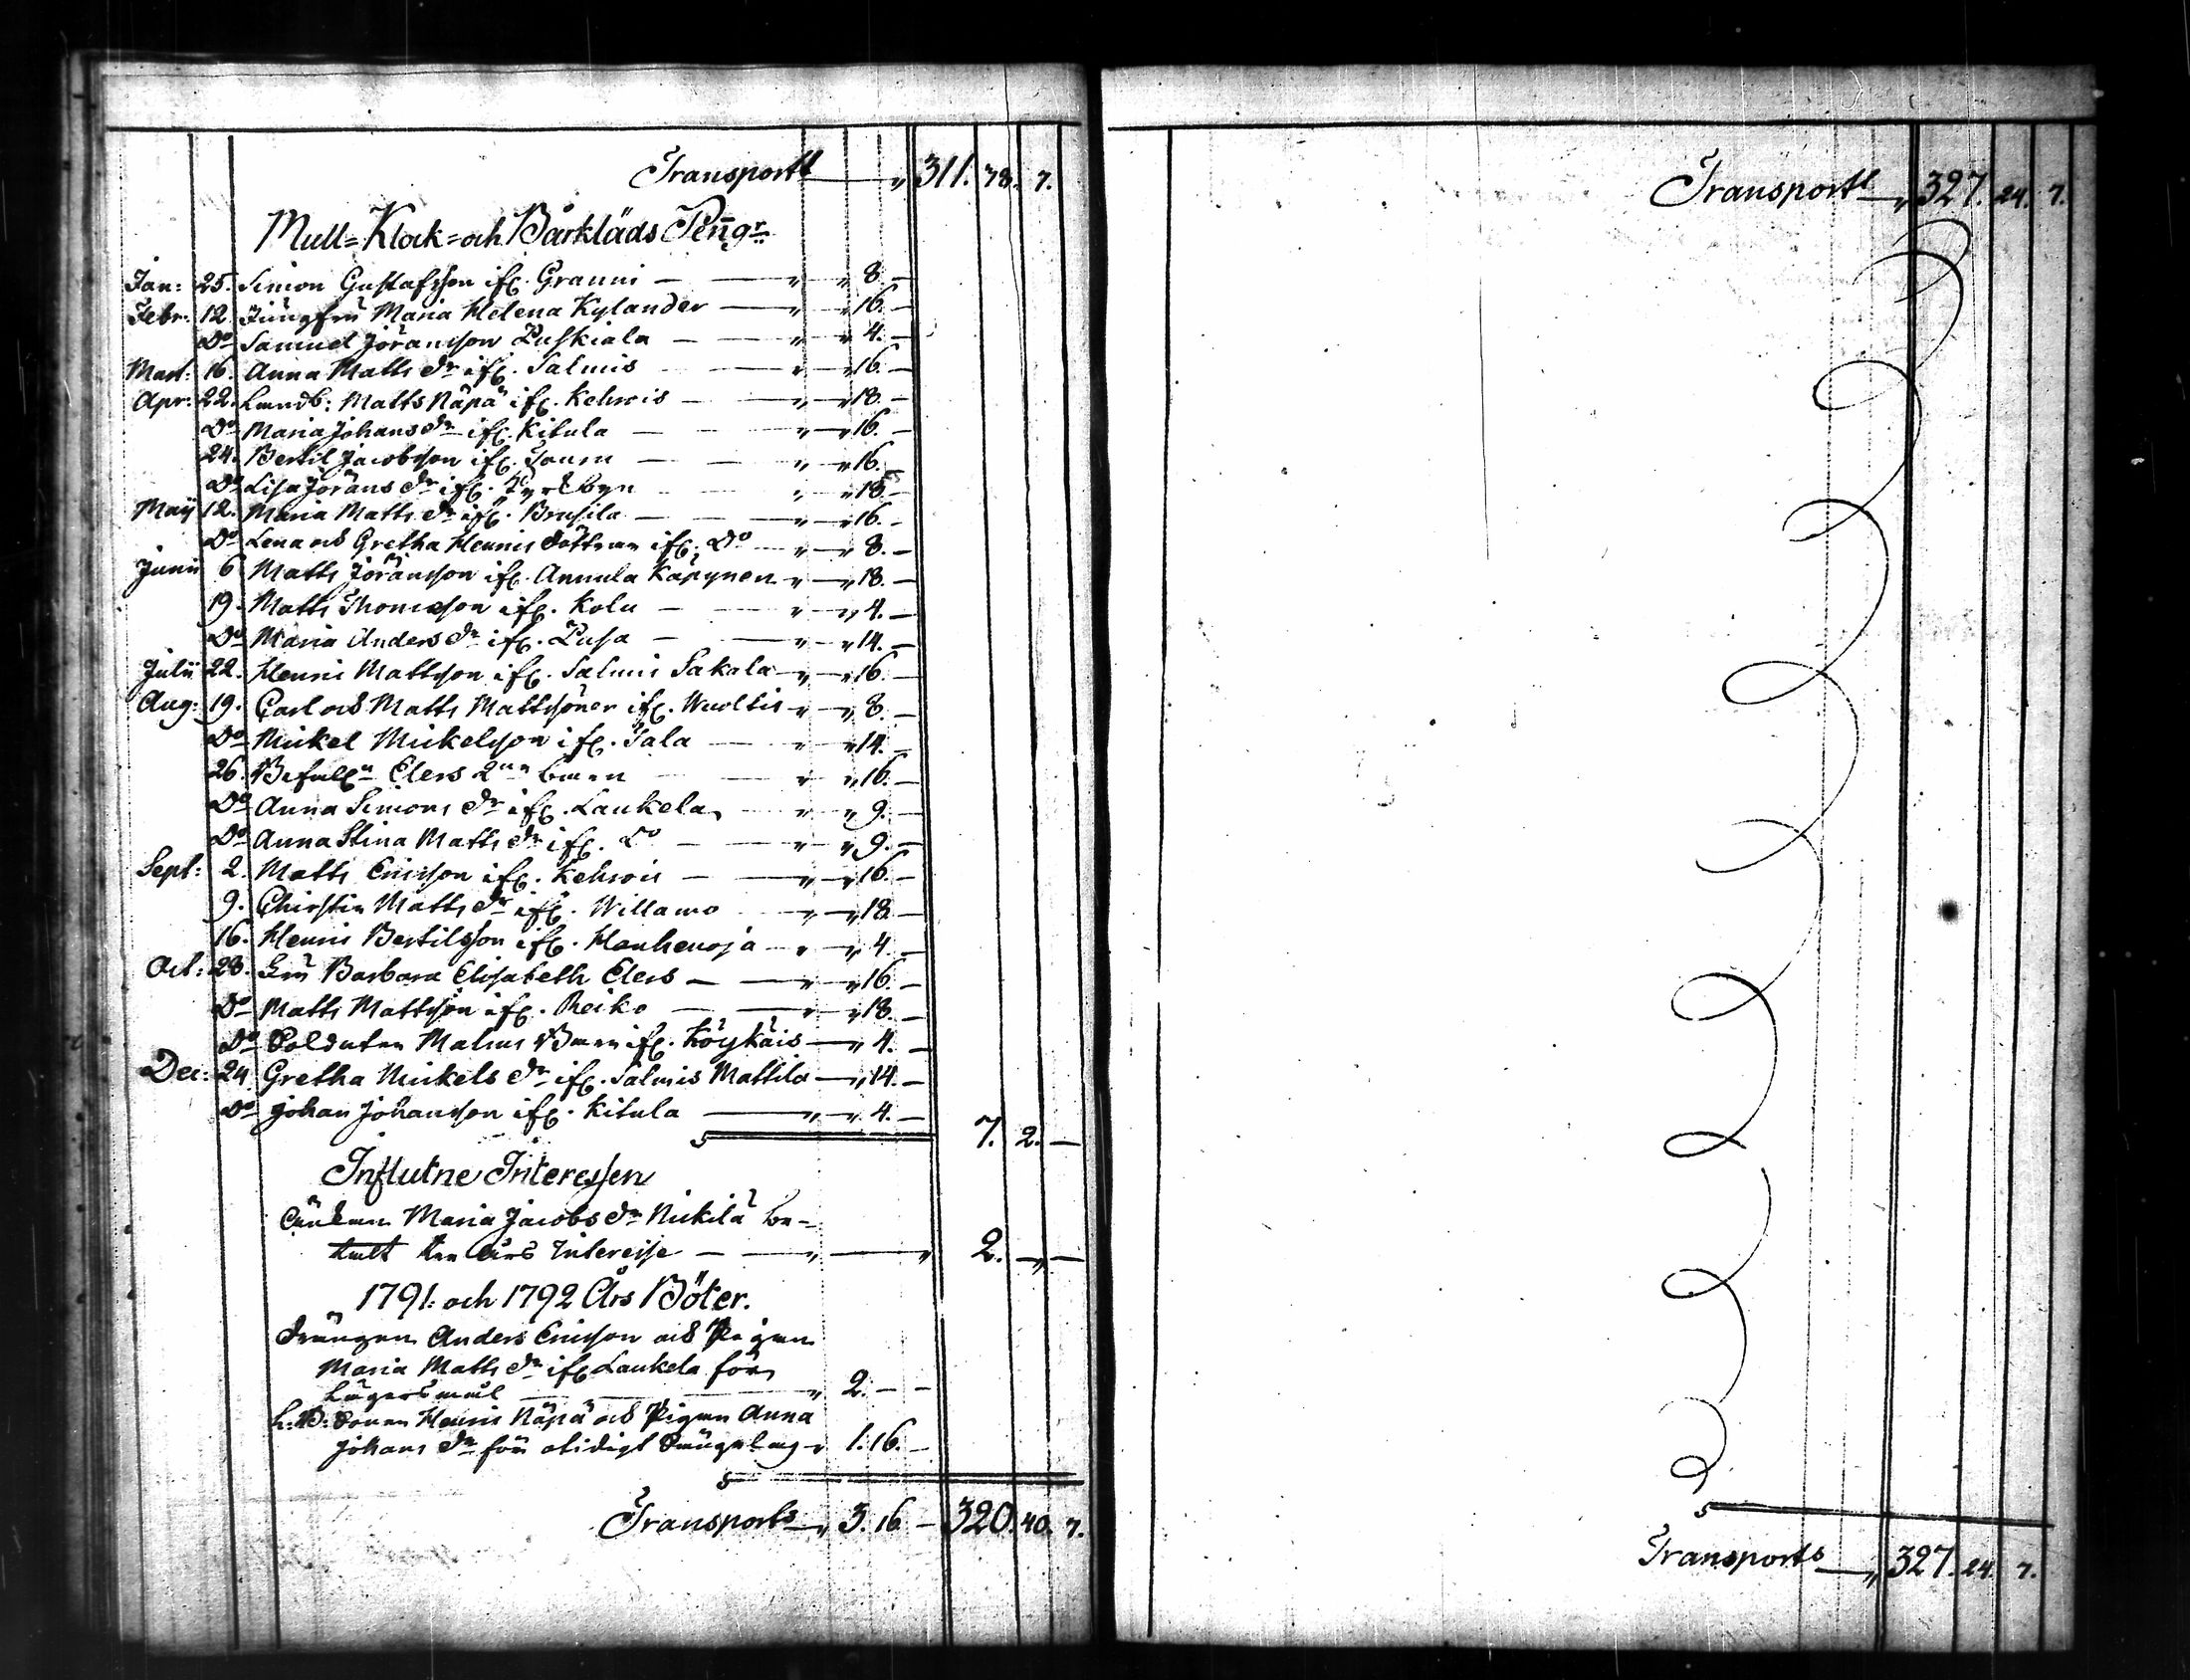 Transport „ 311. 38. 7.
Mull= Klock= och Bårkläds Peng:r
Jan: 25. Simon Gustafsson ifr. Granni — „ „ 8. —
Febr: 12. Jungfru Maria Helena Kylander — „ „ 16. —
D:o Samuel Jöransson Puskiala — „ „ 4. —
Mart: 16. Anna Matts dr ifr. Salmis „ „ 16. —
Apr: 22. Landb: Matts Näpä ifr. Kehrois — „ „ 18. —
D:o Maria Johans dr ifr. Kitula — „ „ 16. —
24. Bertil Jacobsson ifr. — „ „ 16. —
D:o Lisa Jörans dr ifr. „ „ 18. —
Maij 12. Maria Matts dr ifr. Brusila — „ „ 16. —
D:o Lena och Gretha Henris döttrar ifr. D:o „ „ 8. —
Junii 6 Matts Jöransson ifr. Annula Käpynen „ „ 18. —
19. Matts Thomasson ifr. Kolu — „ „ 4. —
D:o Maria Anders dr ifr. Pusa — „ „ 14. —
Julii 22. Henric Mattsson ifr. Salmis Sakala „ „ 16. —
Aug: 19. Carl och Matts Mattssöner ifr. Wuoltis „ „ 8. —
D:o Mickel Mickelsson ifr. Sala — „ „ 14. —
26. Elers barn „ „ 16. —
D:o Anna Simons dr ifr. Laukela „ „ 9. —
D:o Anna Stina Matts dr ifr. D:o — „ „ 9. —
Sept: 2. Matts Ericsson ifr. Kehrois — „ „ 16. —
9. Christin Matts dr ifr. Willamo „ „ 18. —
16. Henric Bertilsson ifr. Hanhenoja „ „ 4. —
Oct: 28. Fru Barbara Elisabeth Elers — „ „ 16. —
D:o Matts Mattsson ifr. Reiko — „ „ 18. —
D:o Soldaten Malms Barn ifr. Köykäis — „ 4. —
Dec: 24. Gretha Mickels dr ifr. Salmis Mattila — „ 14. —
D:o Johan Johansson ifr. Kitula — „ „ 4. —
7. 2. —
Influtne Interessen
Enkan Maria Jacobs dr Nickilä be=
talt Interesse — „ — „ 2. — —
1791. och 1792 Års Böter.
Drängen Anders Ericsson och Pigan
Maria Matts dr ifr Laukela för
Lägersmål „ 2. — —
L: B: Sonen Henric Näpä och Pigan Anna
Johans dr för otidigt Sängelag „ 1. 16. —
Transport „ 3. 16 — 320. 40. 7.
Transport „ 327. 24. 7.
Transport „ 327. 24. 7.